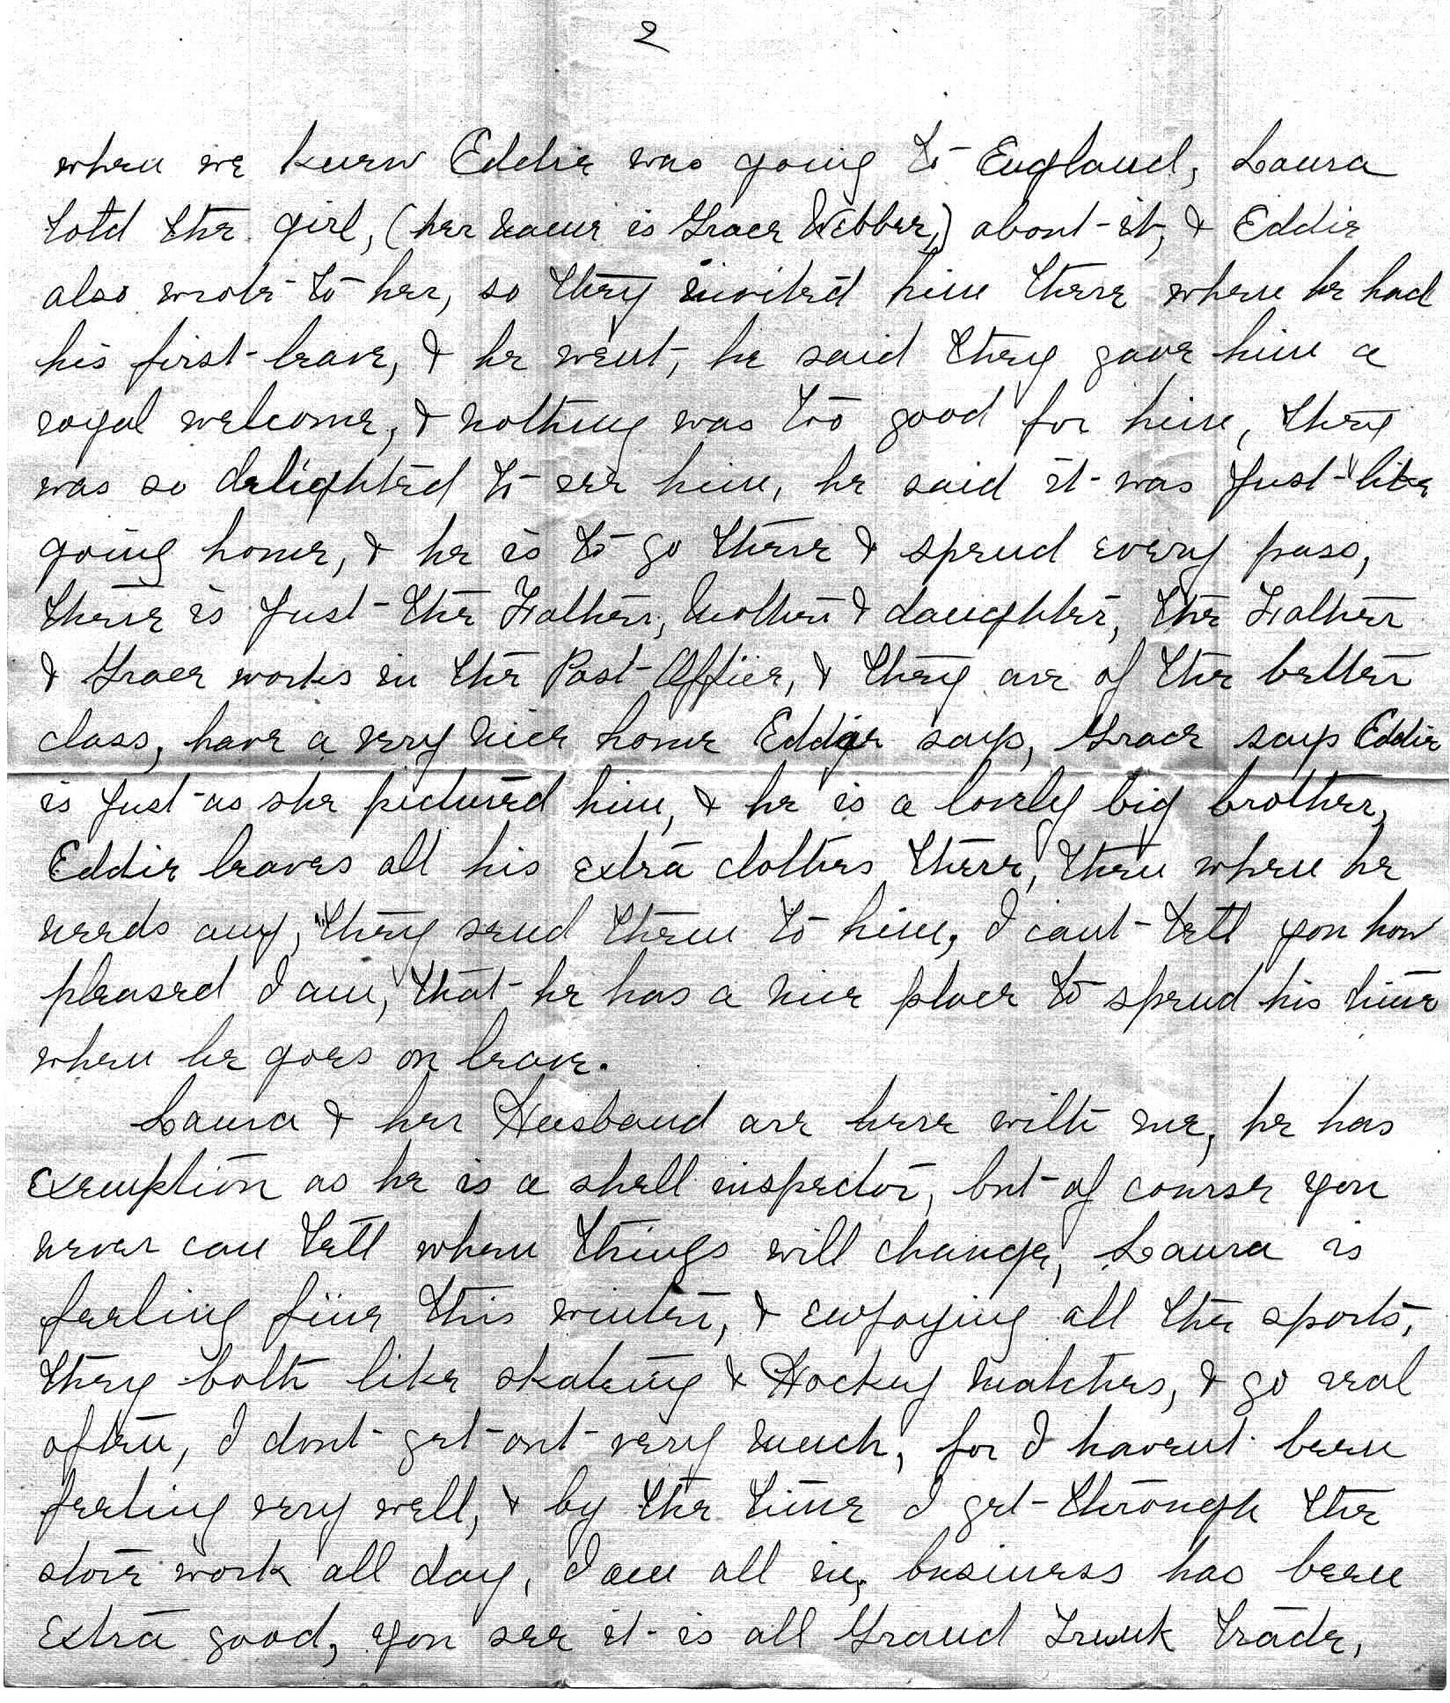 2
when we knew Eddie was going to England, Laura
told the girl, (her name is Grace Webber,) about it, & Eddie
also wrote to her, so they invited him there when he had
his first leave, & he went, he said they gave him a
royal welcome, & nothing was too good for him, they
was so delighted to see him, he said it was just like
going home, & he is to go there & spend every pass,
there is just the Father, Mother & daughter, the Father
& Grace works in the Post Office, & they are of the better
class, have a very nice home Eddie says, Grace says Eddie
is just as she pictured him, & he is a lovely big brother,
Eddie leaves all his extra clothes there, then when he
needs any, they send them to him, I cant tell you how
pleased I am, that he has a nice place to spend his time
when he goes on leave.
Laura & her Husband are here with me, he has
exemption as he is a shell inspector, but of course you
never can tell when things will change, Laura is
feeling fine this winter, & enjoying all the sports,
they both like skating & Hockey matches, & go real
often, I dont get out very much, for I havent been
feeling very well, & by the time I get through the
store work all day, I am all in, business has been
extra good, you see it is all Grand Trunk trade,